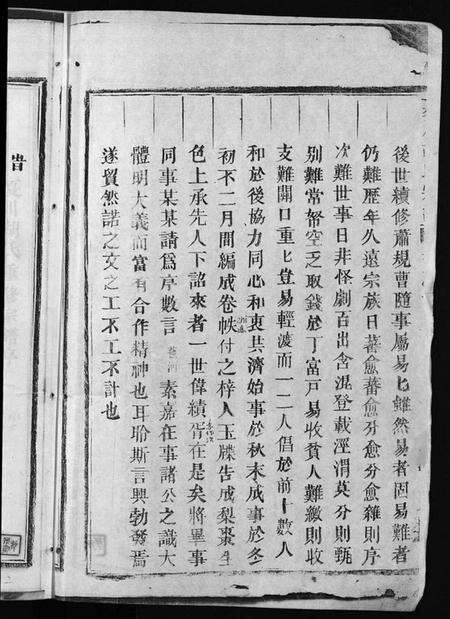 後世續修蕭規曹隨事屬易也雖然易者固易難者
仍難歷年久遠宗族日蕃愈蕃愈分愈分愈雜則序
次難世事日非怪劇百出含混登載涇渭莫分則甄
別難常帑空乏取錢於丁富戶易收貧人難繳則收
支難開口重七登易輕渡而一二人倡於前十數人
和於後協力同心和衷共濟始事於秋末成事於冬
初不二月間編成卷帙付之梓人玉牒告成梨棗生
色上承先人下詒來者一世偉績胥在是矣將畢事
同事某某請爲序數言 素嘉在事諸公之識大
體明大義而富有合作精神也耳聆斯言興勃發焉
遂貿然諾之文之工不工不計也
惜